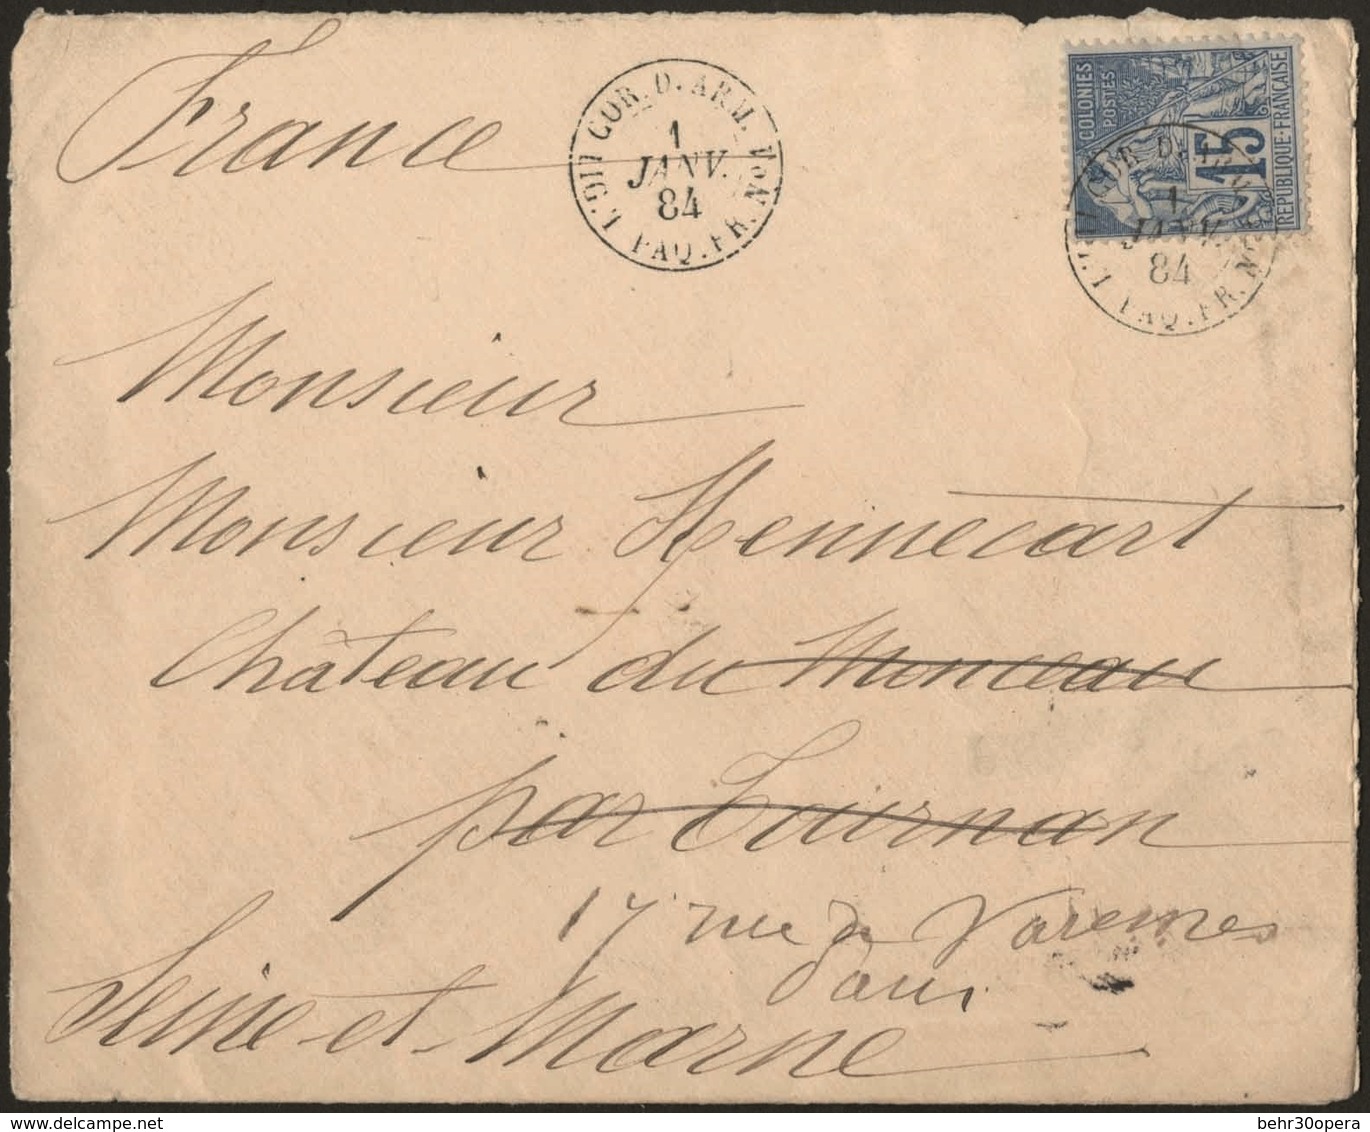 France
COR. D. ARM.
1
JANV.
84
PAQ. FR. No
COLONIES
POSTES
15
REPUBLIQUE-FRANÇAISE
COR. D. ARM.
1
JANV.
84
PAQ. FR. No
Monsieur
Monsieur Hennecart
Château du Monceau
par Tournan
17 rue de Varennes
Paris
Seine-et-Marne
behr30opera